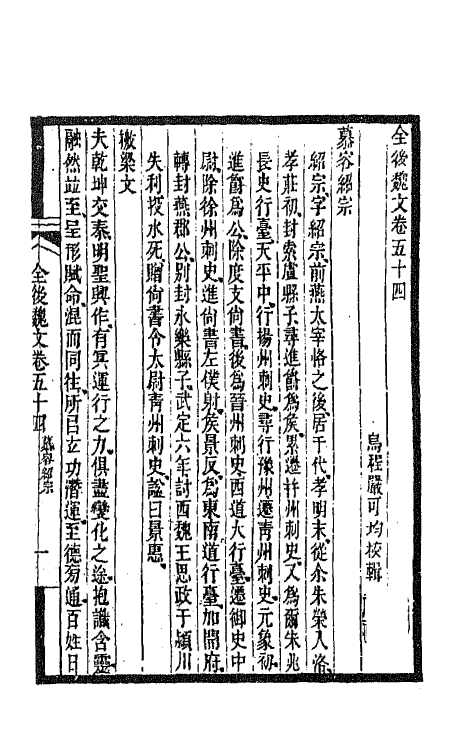 全後魏文卷五十四
烏程嚴可均校輯
慕容紹宗
紹宗字紹宗前燕太宰恪之後居于代孝明末從尒朱榮入洛
孝莊初封索盧縣子尋進爵爲矦累遷幷州刺史又爲爾朱兆
長史行臺天平中行揚州刺史尋行豫州遷青州刺史元象初
進爵爲公除度支尚書後爲晉州刺史西道大行臺遷御史中
尉除徐州刺史進尚書左僕射矦景反爲東南道行臺加開府
轉封燕郡公別封永樂縣子武定六年討西魏王思政于潁川
失利投水死贈尚書令太尉青州刺史諡曰景惠
檄梁文
夫乾坤交泰明聖興作有冥運行之力俱盡變化之途抱識含靈
融然竝至呈形賦命混而同往所㠯立功潛運至德菊通百姓日
全後魏文卷五十四 慕容紹宗 一